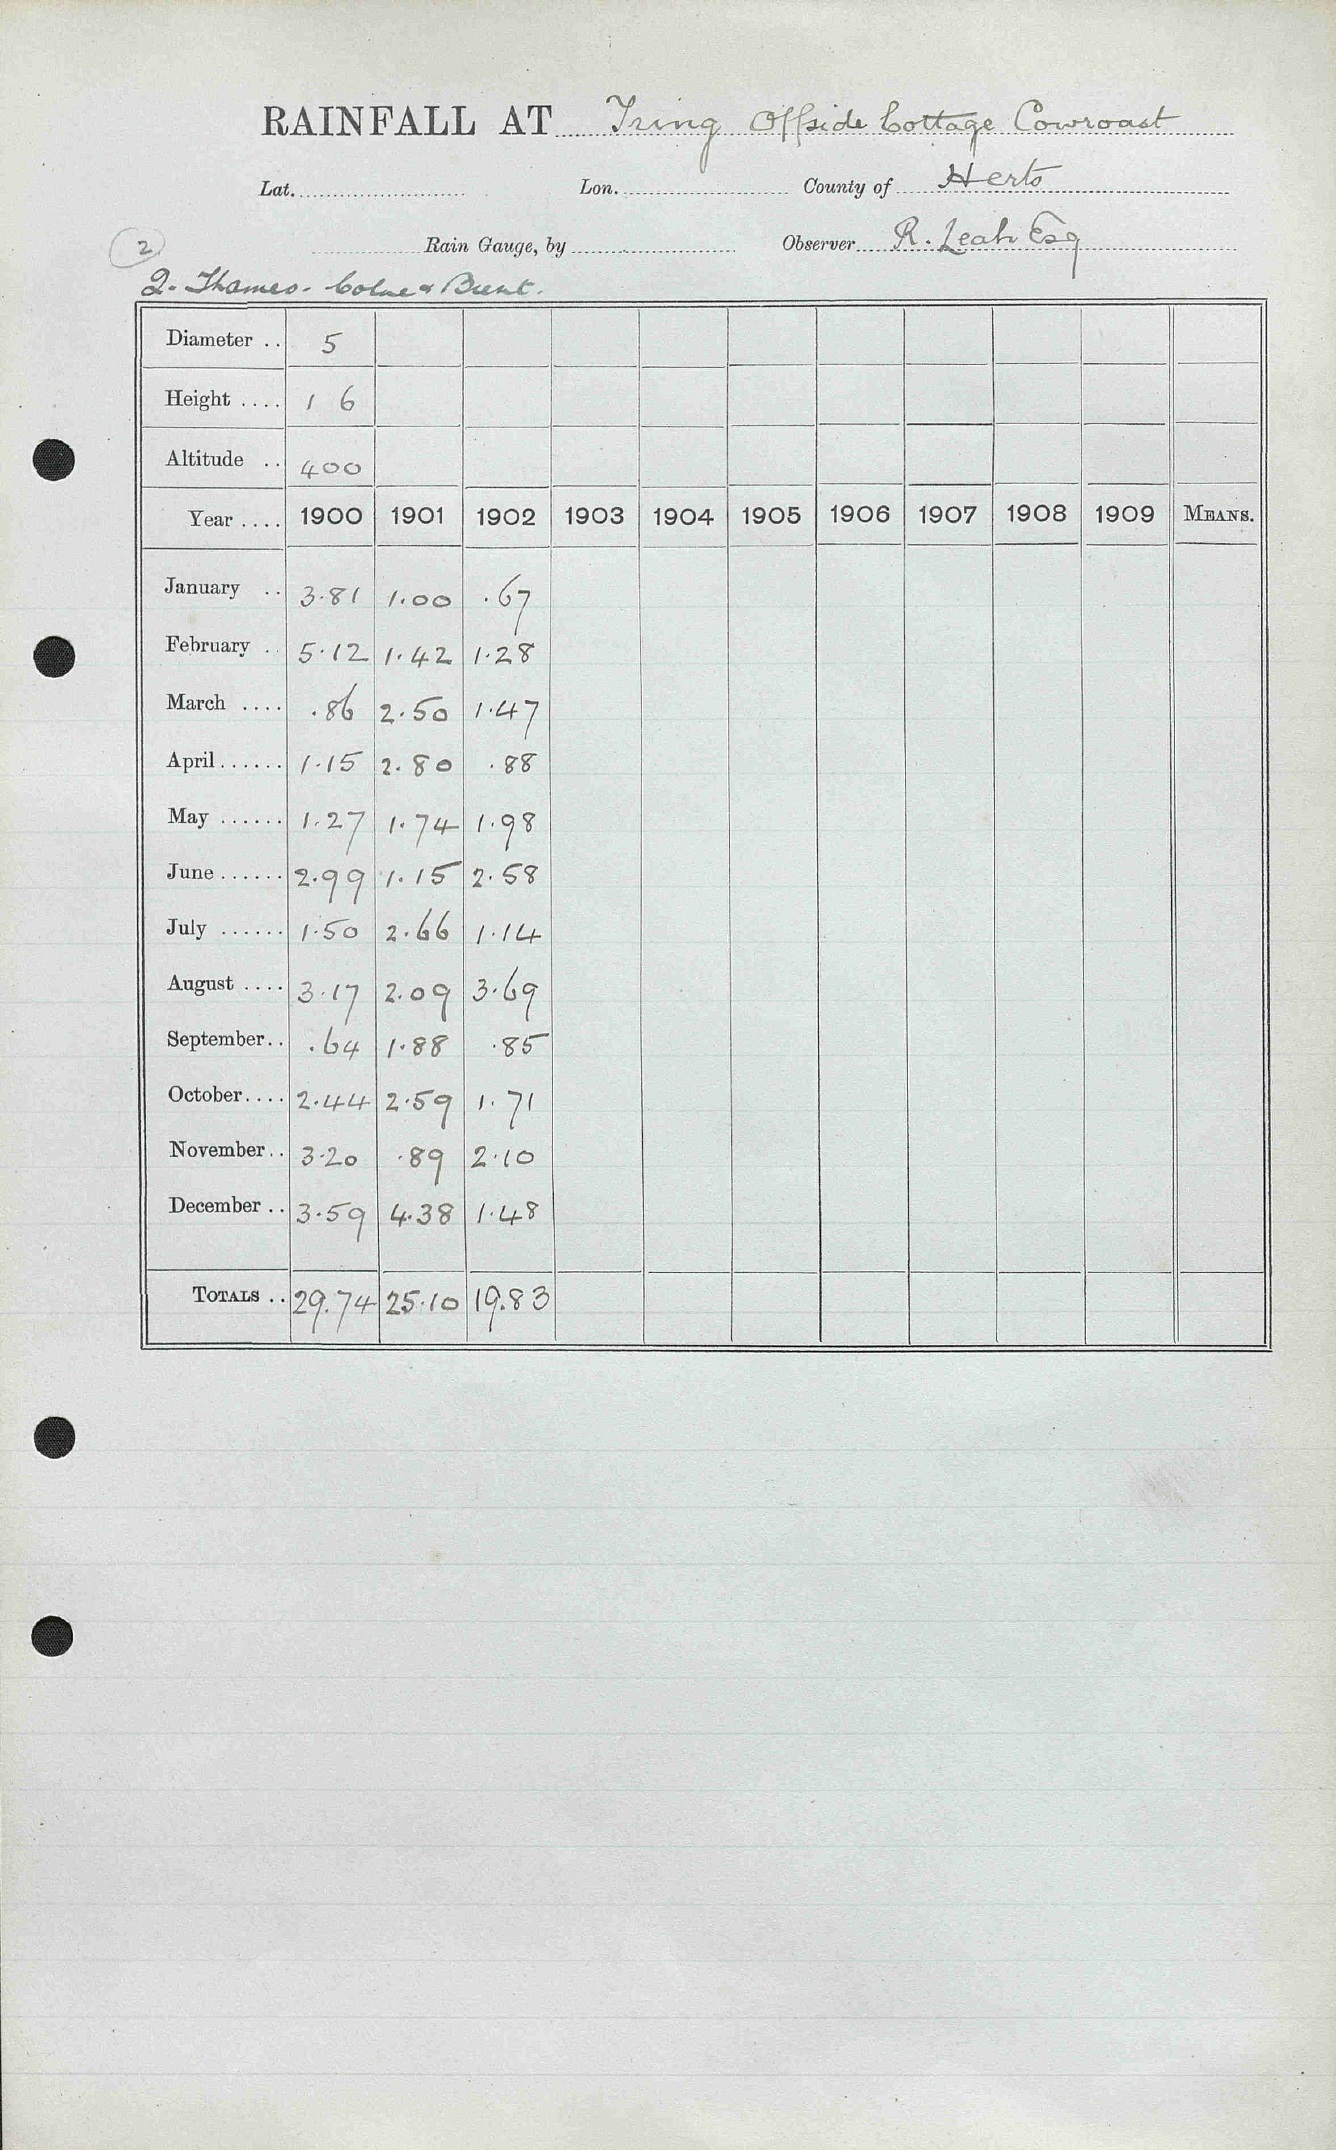 RAINFALL AT Tring Offside Cottage Cowroast
Lat. Lon. County of Herts
2 Rain Gauge, by Observer R. Leah Esq
2. Thames. Colne & Brent.
Diameter .. 5
Height .... 1 6
Altitude .. 400
Year .... 1900 1901 1902 1903 1904 1905 1906 1907 1908 1909 MEANS.
January .. 3.81 1.00 .67
February .. 5.12 1.42 1.28
March .... .86 2.50 1.47
April ...... 1.15 2.80 .88
May ...... 1.27 1.74 1.98
June ...... 2.99 1.15 2.58
July ...... 1.50 2.66 1.14
August .... 3.17 2.09 3.69
September.. .64 1.88 .85
October.... 2.44 2.59 1.71
November.. 3.20 .89 2.10
December .. 3.59 4.38 1.48
TOTALS .. 29.74 25.10 19.83